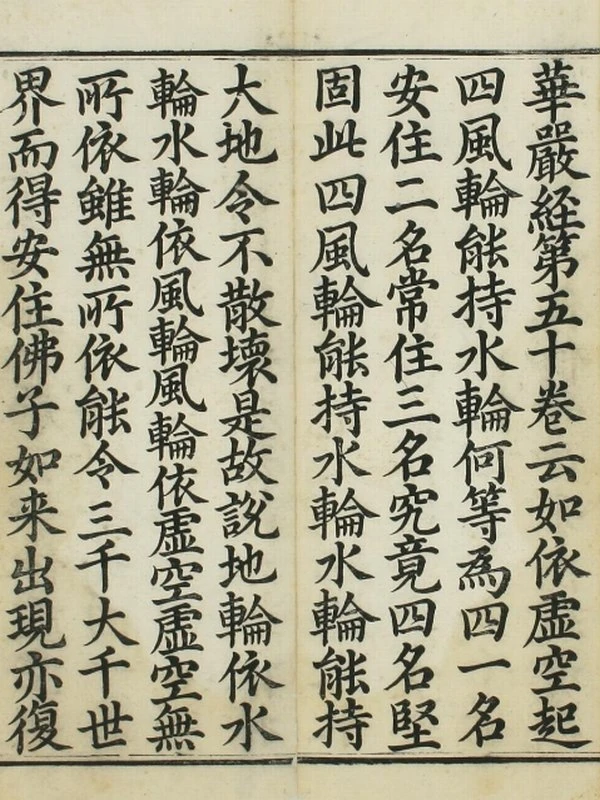 華嚴経第五十卷云如依虚空起
四風輪能持水輪何等為四一名
安住二名常住三名究竟四名堅
固此四風輪能持水輪水輪能持
大地令不散壞是故說地輪依水
輪水輪依風輪風輪依虚空虚空無
所依雖無所依能令三千大千世
界而得安住佛子如来出現亦復